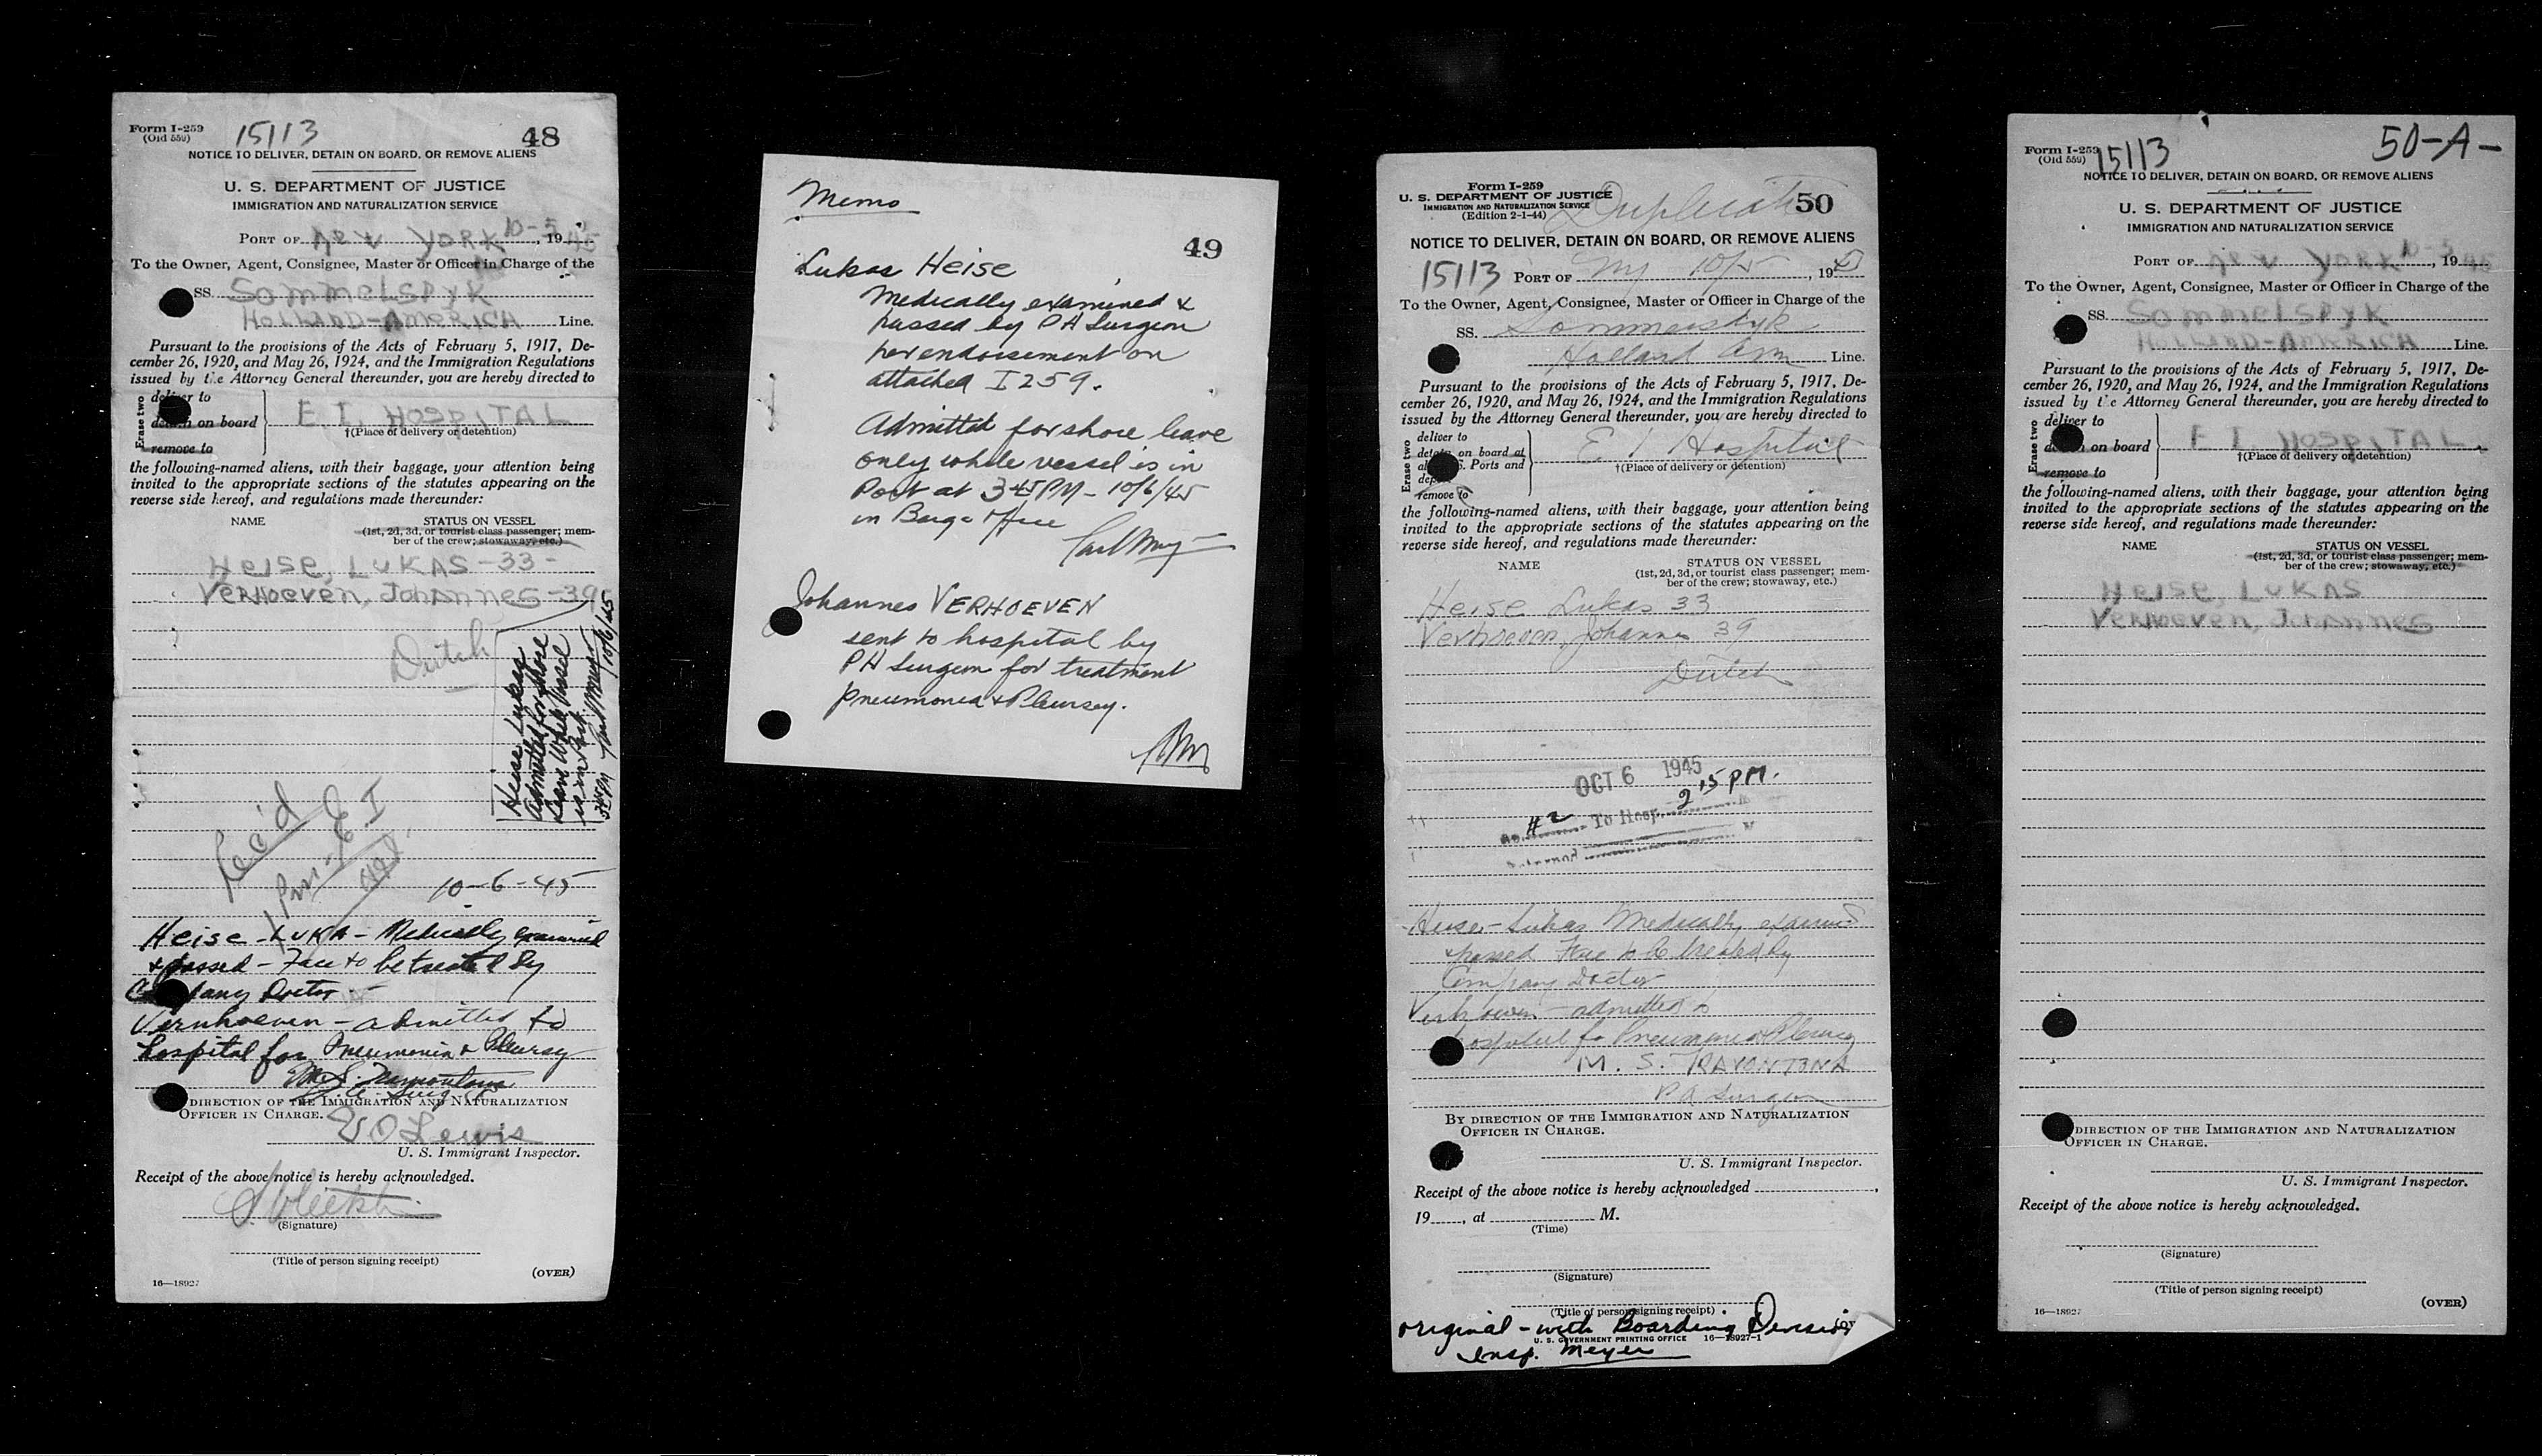 Form I-259
(Old 559)
15113
48
NOTICE TO DELIVER, DETAIN ON BOARD, OR REMOVE ALIENS
U. S. DEPARTMENT OF JUSTICE
IMMIGRATION AND NATURALIZATION SERVICE
PORT OF New York 10-5, 1945
To the Owner, Agent, Consignee, Master or Officer in Charge of the
SS. Sommelspyk
Holland-America Line.
Pursuant to the provisions of the Acts of February 5, 1917, De-
cember 26, 1920, and May 26, 1924, and the Immigration Regulations
issued by the Attorney General thereunder, you are hereby directed to
Erase two
deliver to
detain on board
remove to
E I. HOSPITAL
†(Place of delivery or detention)
the following-named aliens, with their baggage, your attention being
invited to the appropriate sections of the statutes appearing on the
reverse side hereof, and regulations made thereunder:
NAME STATUS ON VESSEL
(1st, 2d, 3d, or tourist class passenger; mem-
ber of the crew; stowaway, etc.)
Heise, LUKAS -33-
Verhoeven, Johannes -39
Dutch
Heise Lukas
admitted for shore
leave while vessel
is in Port
345 PM 10/6/45
Rec'd
E I
10-6-45
Heise - LUKA - Medically examined
& passed - Face to be treated by
Company Doctor -
Vernhoeven - admitted to
hospital for Pneumonia & Pleursy
DIRECTION OF THE IMMIGRATION AND NATURALIZATION
OFFICER IN CHARGE.
E O Lewis
U. S. Immigrant Inspector.
Receipt of the above notice is hereby acknowledged.
(Signature)
(Title of person signing receipt)
16—18927
(OVER)
Memo
49
Lukas Heise
Medically examined &
passed by P A Surgeon
per endorsement on
attached I 259.
Admitted for shore leave
only while vessel is in
Port at 345 PM - 10/6/45
in Barge Office
Johannes VERHOEVEN
sent to hospital by
P A Surgeon for treatment
pneumonia & Pleursey.
Form I-259
U. S. DEPARTMENT OF JUSTICE
IMMIGRATION AND NATURALIZATION SERVICE
(Edition 2-1-44)
Duplicate
50
NOTICE TO DELIVER, DETAIN ON BOARD, OR REMOVE ALIENS
15113
PORT OF NY 10/5, 1945
To the Owner, Agent, Consignee, Master or Officer in Charge of the
SS. Sommelsdyk
Holland Am Line.
Pursuant to the provisions of the Acts of February 5, 1917, De-
cember 26, 1920, and May 26, 1924, and the Immigration Regulations
issued by the Attorney General thereunder, you are hereby directed to
Erase two
deliver to
on board at
S. Ports and
remove to
E I Hospital
†(Place of delivery or detention)
the following-named aliens, with their baggage, your attention being
invited to the appropriate sections of the statutes appearing on the
reverse side hereof, and regulations made thereunder:
NAME STATUS ON VESSEL
(1st, 2d, 3d, or tourist class passenger; mem-
ber of the crew; stowaway, etc.)
Heise Lukas 33
Verhoeven, Johannes 39
Dutch
OCT 6 1945
#2 To Hosp. 2 15 PM.
Heise - Lukas Medically examined
& passed Face to be treated by
Company Doctor
Verhoeven - admitted to
hospital for Pneumonia & Pleursy
M. S. TRAVONTONA
P A Surgeon
BY DIRECTION OF THE IMMIGRATION AND NATURALIZATION
OFFICER IN CHARGE.
U. S. Immigrant Inspector.
Receipt of the above notice is hereby acknowledged
19......, at M.
(Time)
(Signature)
(Title of person signing receipt)
original - with Boarding Division
U. S. GOVERNMENT PRINTING OFFICE 16—18927-1
Insp. Meyer
Form I-259
(Old 559)
15113
50-A-
NOTICE TO DELIVER, DETAIN ON BOARD, OR REMOVE ALIENS
U. S. DEPARTMENT OF JUSTICE
IMMIGRATION AND NATURALIZATION SERVICE
PORT OF New York 10-5, 1945
To the Owner, Agent, Consignee, Master or Officer in Charge of the
SS. Sommelspyk
Holland-America Line.
Pursuant to the provisions of the Acts of February 5, 1917, De-
cember 26, 1920, and May 26, 1924, and the Immigration Regulations
issued by the Attorney General thereunder, you are hereby directed to
Erase two
deliver to
on board
remove to
E I. HOSPITAL
†(Place of delivery or detention)
the following-named aliens, with their baggage, your attention being
invited to the appropriate sections of the statutes appearing on the
reverse side hereof, and regulations made thereunder:
NAME STATUS ON VESSEL
(1st, 2d, 3d, or tourist class passenger; mem-
ber of the crew; stowaway, etc.)
Heise, LUKAS
Verhoeven, Johannes
DIRECTION OF THE IMMIGRATION AND NATURALIZATION
OFFICER IN CHARGE.
U. S. Immigrant Inspector.
Receipt of the above notice is hereby acknowledged.
(Signature)
(Title of person signing receipt)
16—18927
(OVER)